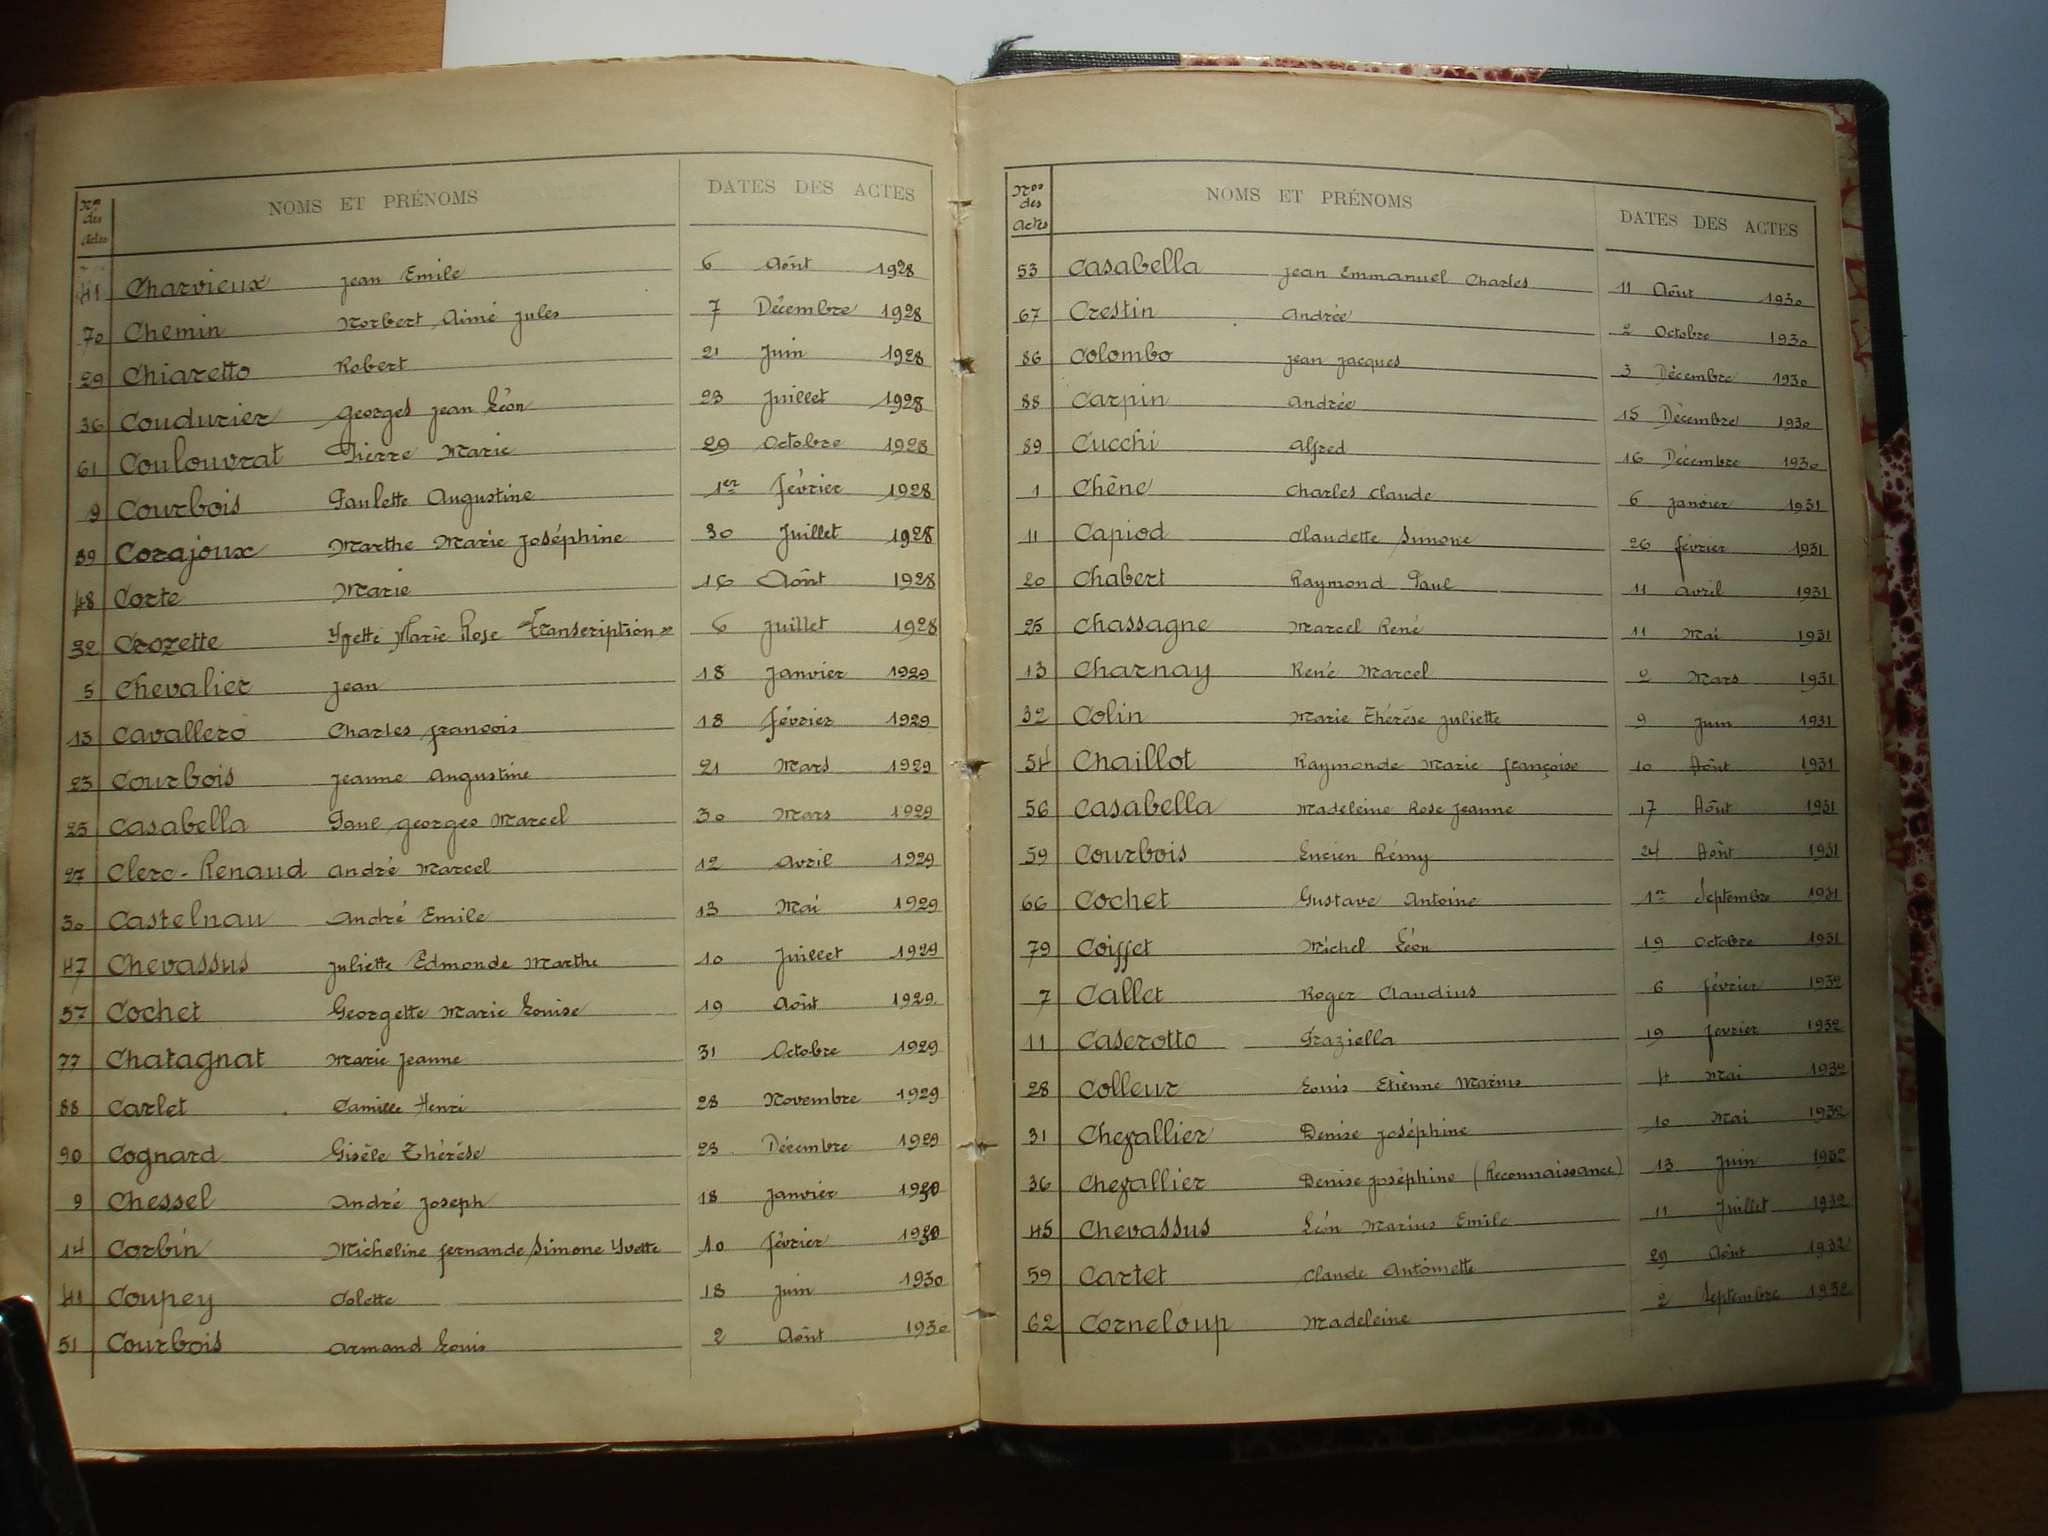 Nos des Actes NOMS ET PRÉNOMS DATES DES ACTES
41 Charvieux Jean Emile 6 Août 1928
70 Chemin Norbert Aimé Jules 7 Décembre 1928
29 Chiaretto Robert 21 Juin 1928
36 Coudurier Georges Jean Léon 23 Juillet 1928
61 Coulouvrat Pierre Marie 29 Octobre 1928
9 Courbois Paulette Augustine 1er Février 1928
39 Corajoux Marthe Marie Joséphine 30 Juillet 1928
48 Corte Marie 16 Août 1928
32 Crozette Yvette Marie Rose "Transcription" 6 Juillet 1928
5 Chevalier Jean 18 Janvier 1929
13 Cavallero Charles François 18 Février 1929
23 Courbois Jeanne Augustine 21 Mars 1929
25 Casabella Paul Georges Marcel 30 Mars 1929
27 Clerc-Renaud André Marcel 12 Avril 1929
30 Castelnau André Emile 13 Mai 1929
47 Chevassus Juliette Edmonde Marthe 10 Juillet 1929
57 Cochet Georgette Marie Louise 19 Août 1929
77 Chatagnat Marie Jeanne 31 Octobre 1929
88 Carlet Camille Henri 28 Novembre 1929
90 Cognard Gisèle Thérèse 23 Décembre 1929
9 Chessel André Joseph 18 Janvier 1930
14 Corbin Micheline Fernande Simone Yvette 10 Février 1930
41 Coupey Colette 18 Juin 1930
51 Courbois Armand Louis 2 Août 1930
Nos des Actes NOMS ET PRÉNOMS DATES DES ACTES
53 Casabella Jean Emmanuel Charles 11 Août 1930
67 Crestin Andrée 2 Octobre 1930
86 Colombo Jean Jacques 3 Décembre 1930
88 Carpin Andrée 15 Décembre 1930
89 Cucchi Alfred 16 Décembre 1930
1 Chêne Charles Claude 6 Janvier 1931
11 Capiod Claudette Simone 26 Février 1931
20 Chabert Raymond Paul 11 Avril 1931
25 Chassagne Marcel René 11 Mai 1931
13 Charnay René Marcel 2 Mars 1931
32 Colin Marie Thérèse Juliette 9 Juin 1931
54 Chaillot Raymonde Marie Françoise 10 Août 1931
56 Casabella Madeleine Rose Jeanne 17 Août 1931
59 Courbois Lucien Rémy 24 Août 1931
66 Cochet Gustave Antoine 1er Septembre 1931
79 Coiffet Michel Léon 19 Octobre 1931
7 Callet Roger Claudius 6 Février 1932
11 Caserotto Graziella 19 Février 1932
28 Colleur Louis Etienne Marius 4 Mai 1932
31 Chevallier Denise Joséphine 10 Mai 1932
36 Chevallier Denise Joséphine (Reconnaissance) 13 Juin 1932
45 Chevassus Léon Marius Emile 11 Juillet 1932
59 Cartet Claude Antoinette 29 Août 1932
62 Corneloup Madeleine 2 Septembre 1932